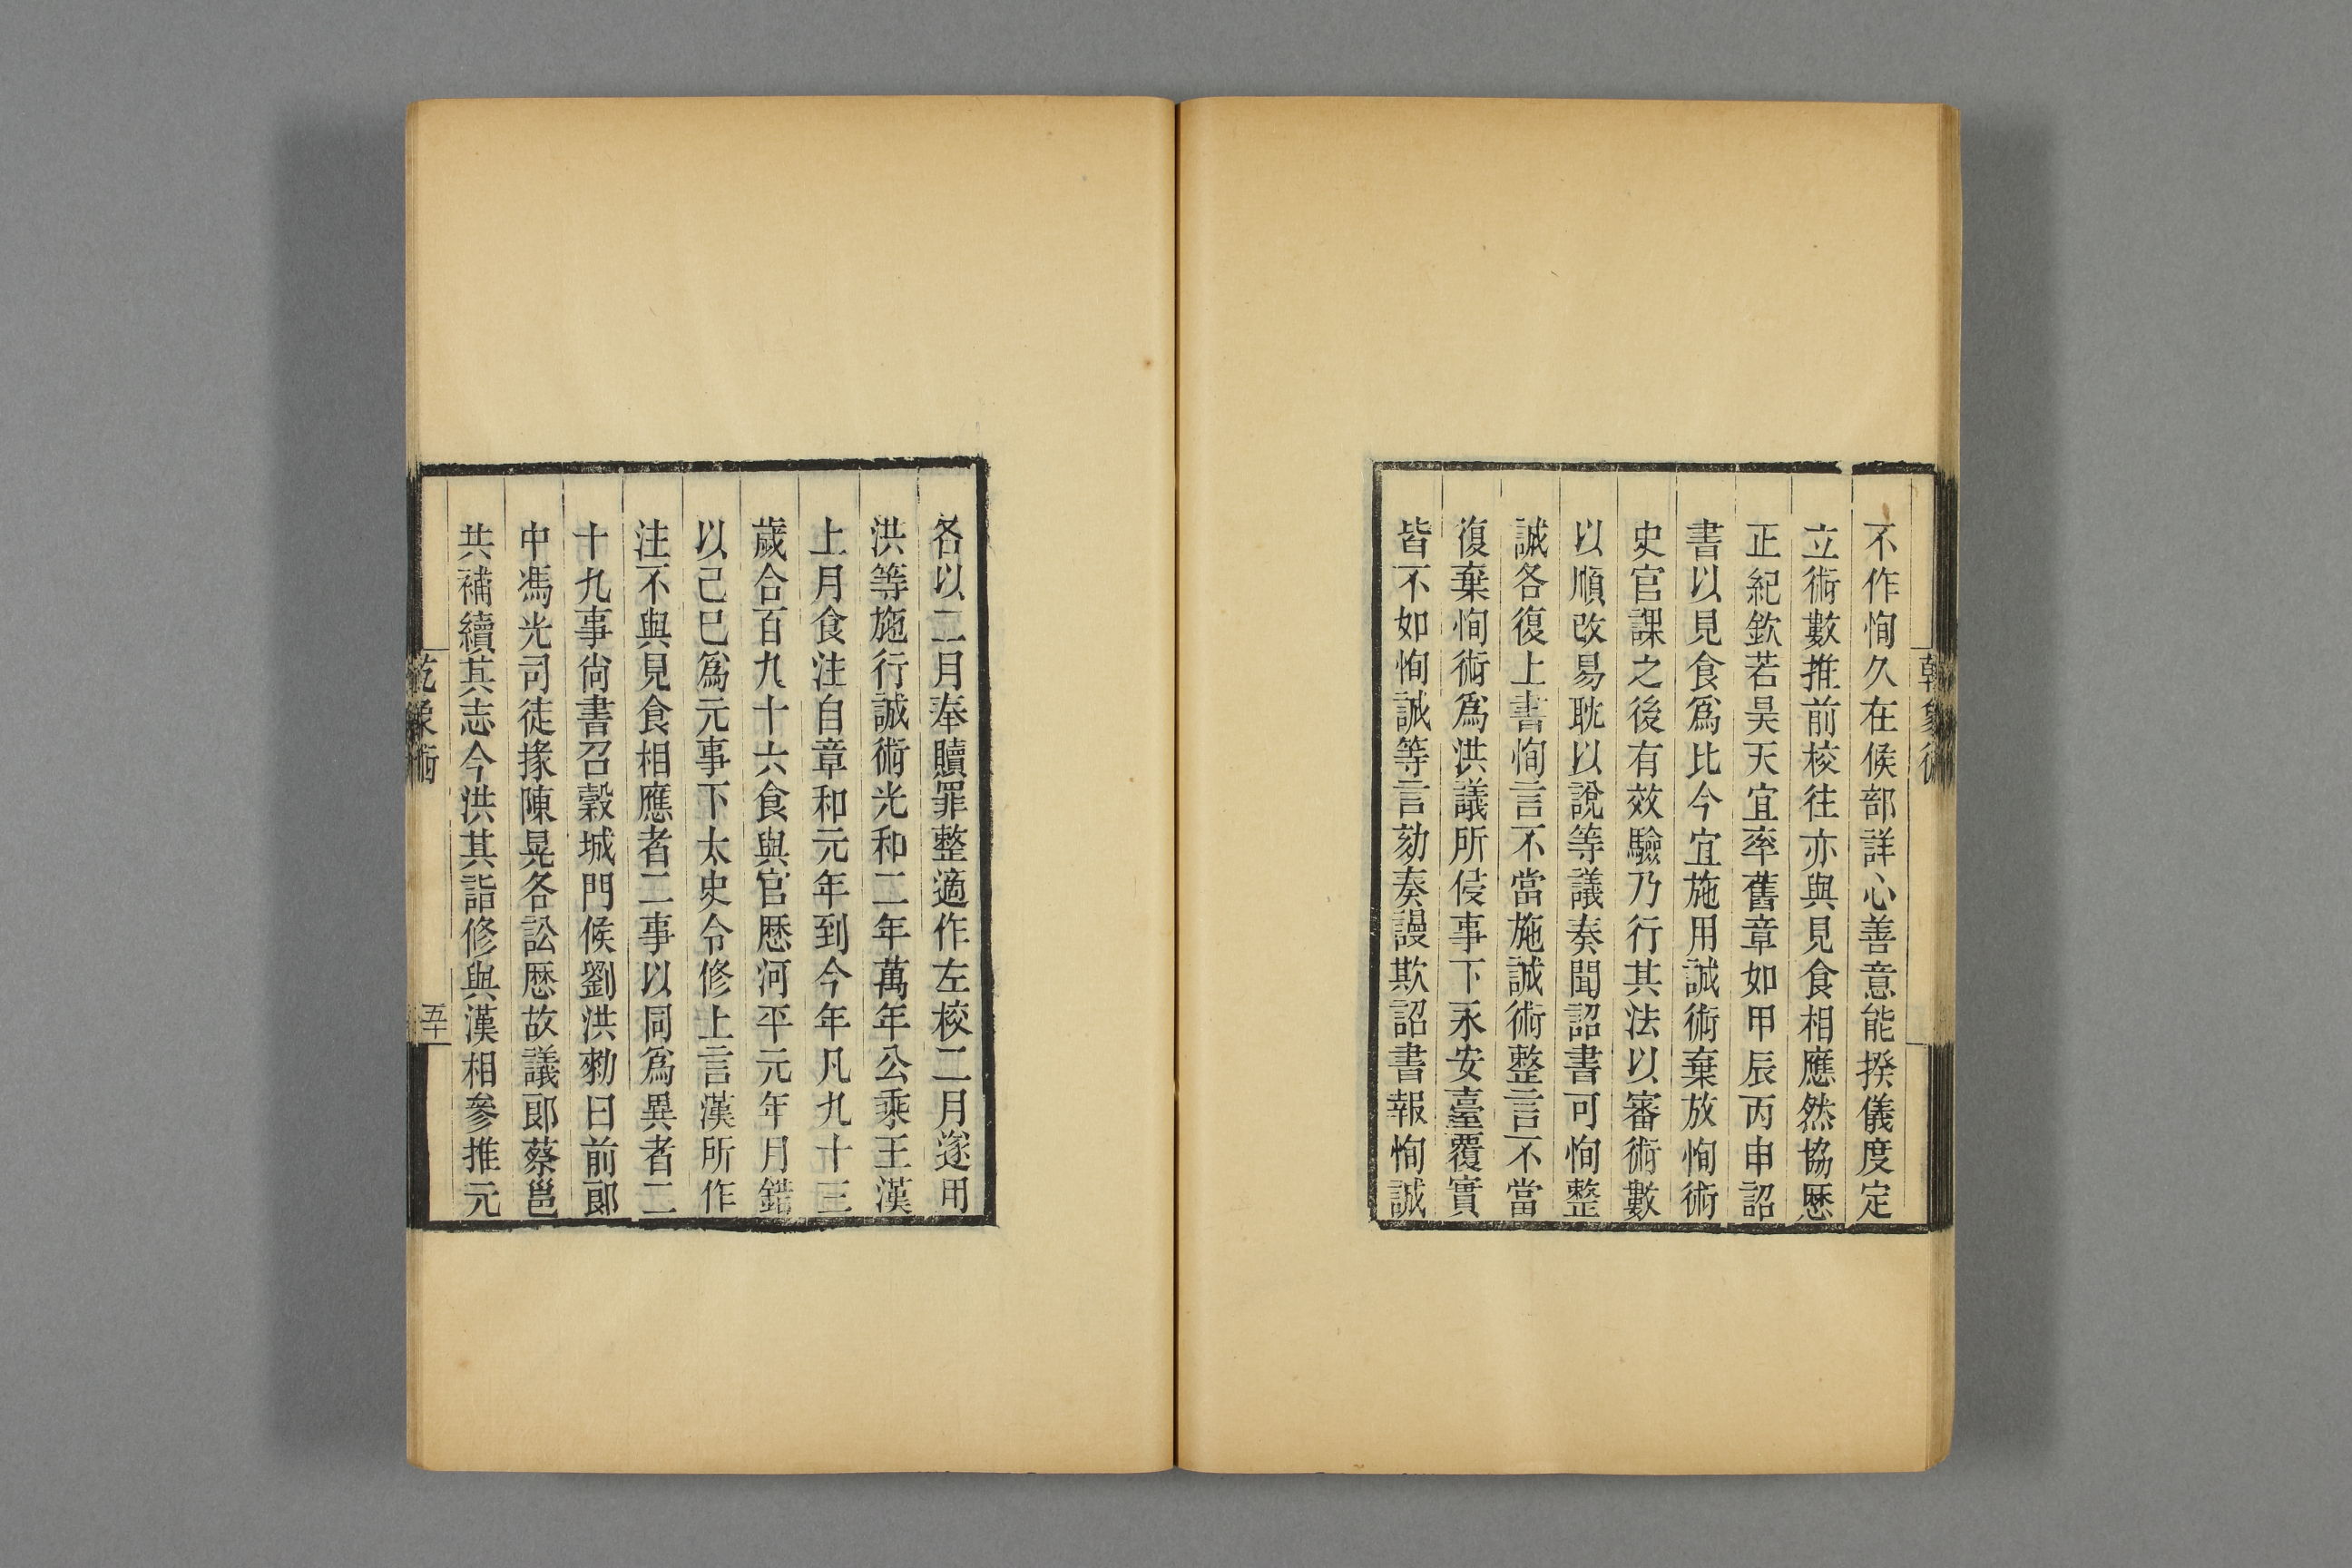 乾象術
不作恂久在候部詳心善意能揆儀度定
立術數推前校往亦與見食相應然協歷
正紀欽若昊天宜率舊章如甲辰丙申詔
書以見食爲比今宜施用誠術棄放恂術
史官課之後有效驗乃行其法以審術數
以順改易耽以說等議奏聞詔書可恂整
誠各復上書恂言不當施誠術整言不當
復棄恂術爲洪議所侵事下永安臺覆實
皆不如恂誠等言劾奏謾欺詔書報恂誠
各以二月奉贖罪整適作左校二月遂用
洪等施行誠術光和二年萬年公乘王漢
上月食注自章和元年到今年凡九十三
歲合百九十六食與官歷河平元年月錯
以己巳爲元事下太史令修上言漢所作
注不與見食相應者二事以同爲異者二
十九事尚書召穀城門候劉洪勑曰前郞
中馮光司徒掾陳晃各訟歷故議郞蔡邕
共補續其志今洪其詣修與漢相參推元
乾象術
五十